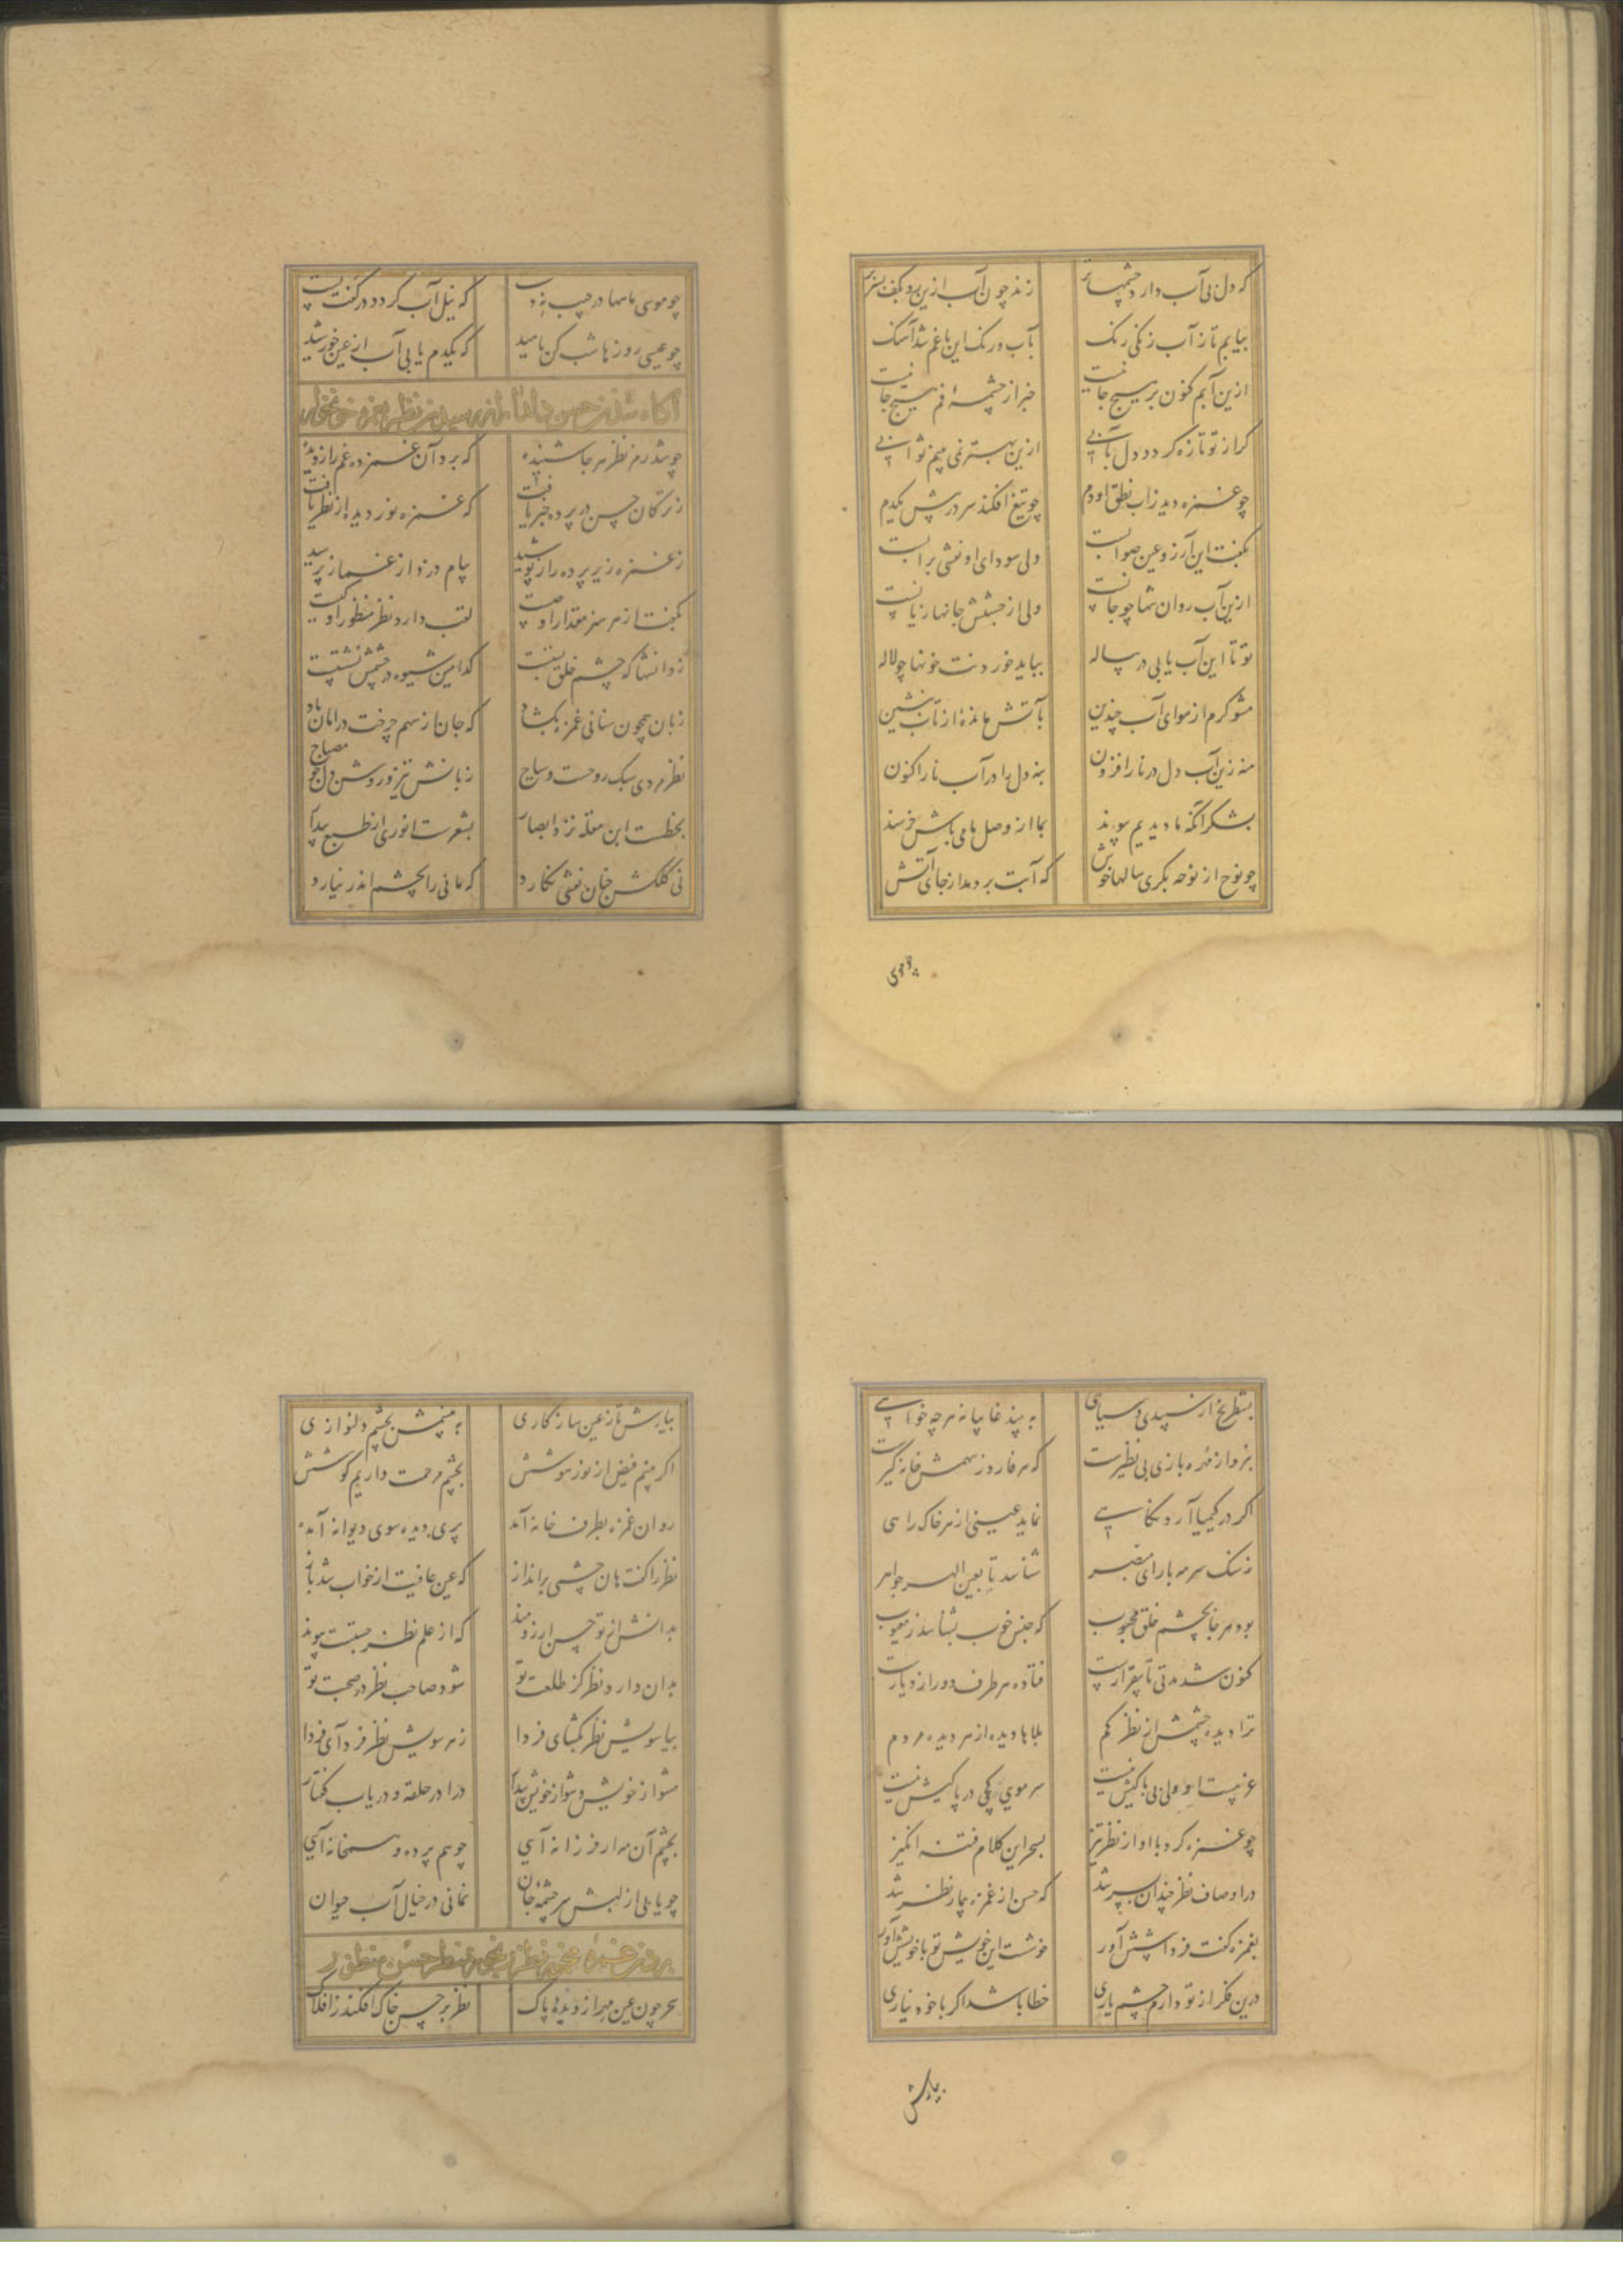 که دل بی آب دارد چشمهاتر زند چون آب ازین رو بکف سر
بیابم تا ز آب زندگی رنک بآب و رنک این باغم شد آهنک
ازین آبم کنون بر هیچ جا نیست خبر از چشمه ام هیچ جا نیست
گر از تو تازه گردد دل بآبی ازین بهتر نمی بینم ثوابی
چو غمزه دید زاب نطق او دم چو تیغ افکند سر در پیش یکدم
بگفت این آرزو عین صوابست ولی سودای او نقشی بر آبست
ازین آب روان شما چو جانست ولی از جستنش جانها زیانست
تو تا این آب یابی در پیاله بباید خوردنت خونها چو لاله
مشو گرم از هوای آب چندین بآتش مانده از تاب بنشین
منه زین آب دل در نار افزون بنه دل را در آب نار اکنون
بشکر آنکه ما دیدیم پیوند بما از وصل ما می باش خرسند
چو نوح از نوحه بگری سالها خوش که آبت بر دمد از جای آتش
چو موسی
چو موسی ماهها در جیب نه دست که نیل آب گردد در کفت پست
چو عیسی روزها شب کن بامید که یکدم یابی آب از عین خورشید
آگاه شدن حسن
چو شد رمز نظر هر جا شنیده که برد آن غمزده غم را ز دیده
ز ترکان حسن در پرده خبر یافت که غمزه نور دیده از نظر یافت
ز غمزه زیر پرده راز پوشید پیام دزد از غماز پرسید
بگفت از هر هنر مقدار او چیست لقب دارد نظر منظور او کیست
ز دانشها که چشم خلق بینست کدامین شیوه در چشمش نشستست
زبان همچون سنانی غمزه بکشاد که جان از سهم چرخت در امان باد
نظر مردی سبک روحست و سیاح زبانش تیز و روشن دل چو مصباح
بخطست ابن مقله نزد ابصار بشعرست انوری از طبع پیدا
نی کلکش چنان نقشی نگارد که مانی را بچشم اندر نیارد
بشطرنج از سپیدی و سیاهی به بیند غایبانه هر چه خواهی
بنرد از مهره بازی بی نظیرست که هر فارد ز سهمش خانه گیرست
اگر در کیمیا آرد نگاهی نماید عینی از هر خاک راهی
ز سنک سرمه با رای مبصر شناسد تا بعین الهر جواهر
بود هر جا بچشم خلق محبوب که جنس خوب بشناسد ز معیوب
کنون شد مدتی تا بیقرارست فتاده هر طرف دور از دیارست
ترا دیده چشمش از نظر کم بلاها دیده از هر دیده مردم
غریبست او ولی بی باکیش نیست سر مویی کجی در پاکیش نیست
چو غمزه کرد با او از نظر تیز بسحر این کلام فتنه انگیز
در اوصاف نظر چندان بسر شد که حسن از غمزه بیمار نظر شد
بغمزه گفت فردا پیشش آور خوشست این خویش تو با خویشش آور
درین فکر از تو دارم چشم یاری خطا باشد اگر با خود نیاری
بیارش
بیارش تا ز عین سازگاری به بینمش بچشم دلنوازی
اگر بینم فیض از نور هوشش بچشم مرحمت داریم گوشش
روان غمزه بطرف خانه آمد پری دیده سوی دیوانه آمد
نظر را گفت هان چشمی برانداز که عین عافیت از خواب شد باز
بدانش از تو حسن ارزومند که از علم نظر جستست پیوند
بدان دارد نظر کز طلعت تو شود صاحب نظر در صحبت تو
بیا سویش نظر بگشای فردا ز هر سویش نظر فرد آی فردا
مشو از خویش و شو از خویش پیدا درا در حلقه و دریاب گفتار
بچشم آن مه ار فرزانه آیی چو هم پرده و همخانه آیی
چو یابی از لبش سرچشمه جان نمانی در خیال آب حیوان
بردن غمزه
سحر چون عین مهر از دیدهٔ پاک نظر بر چین خاک افکند ز افلاک